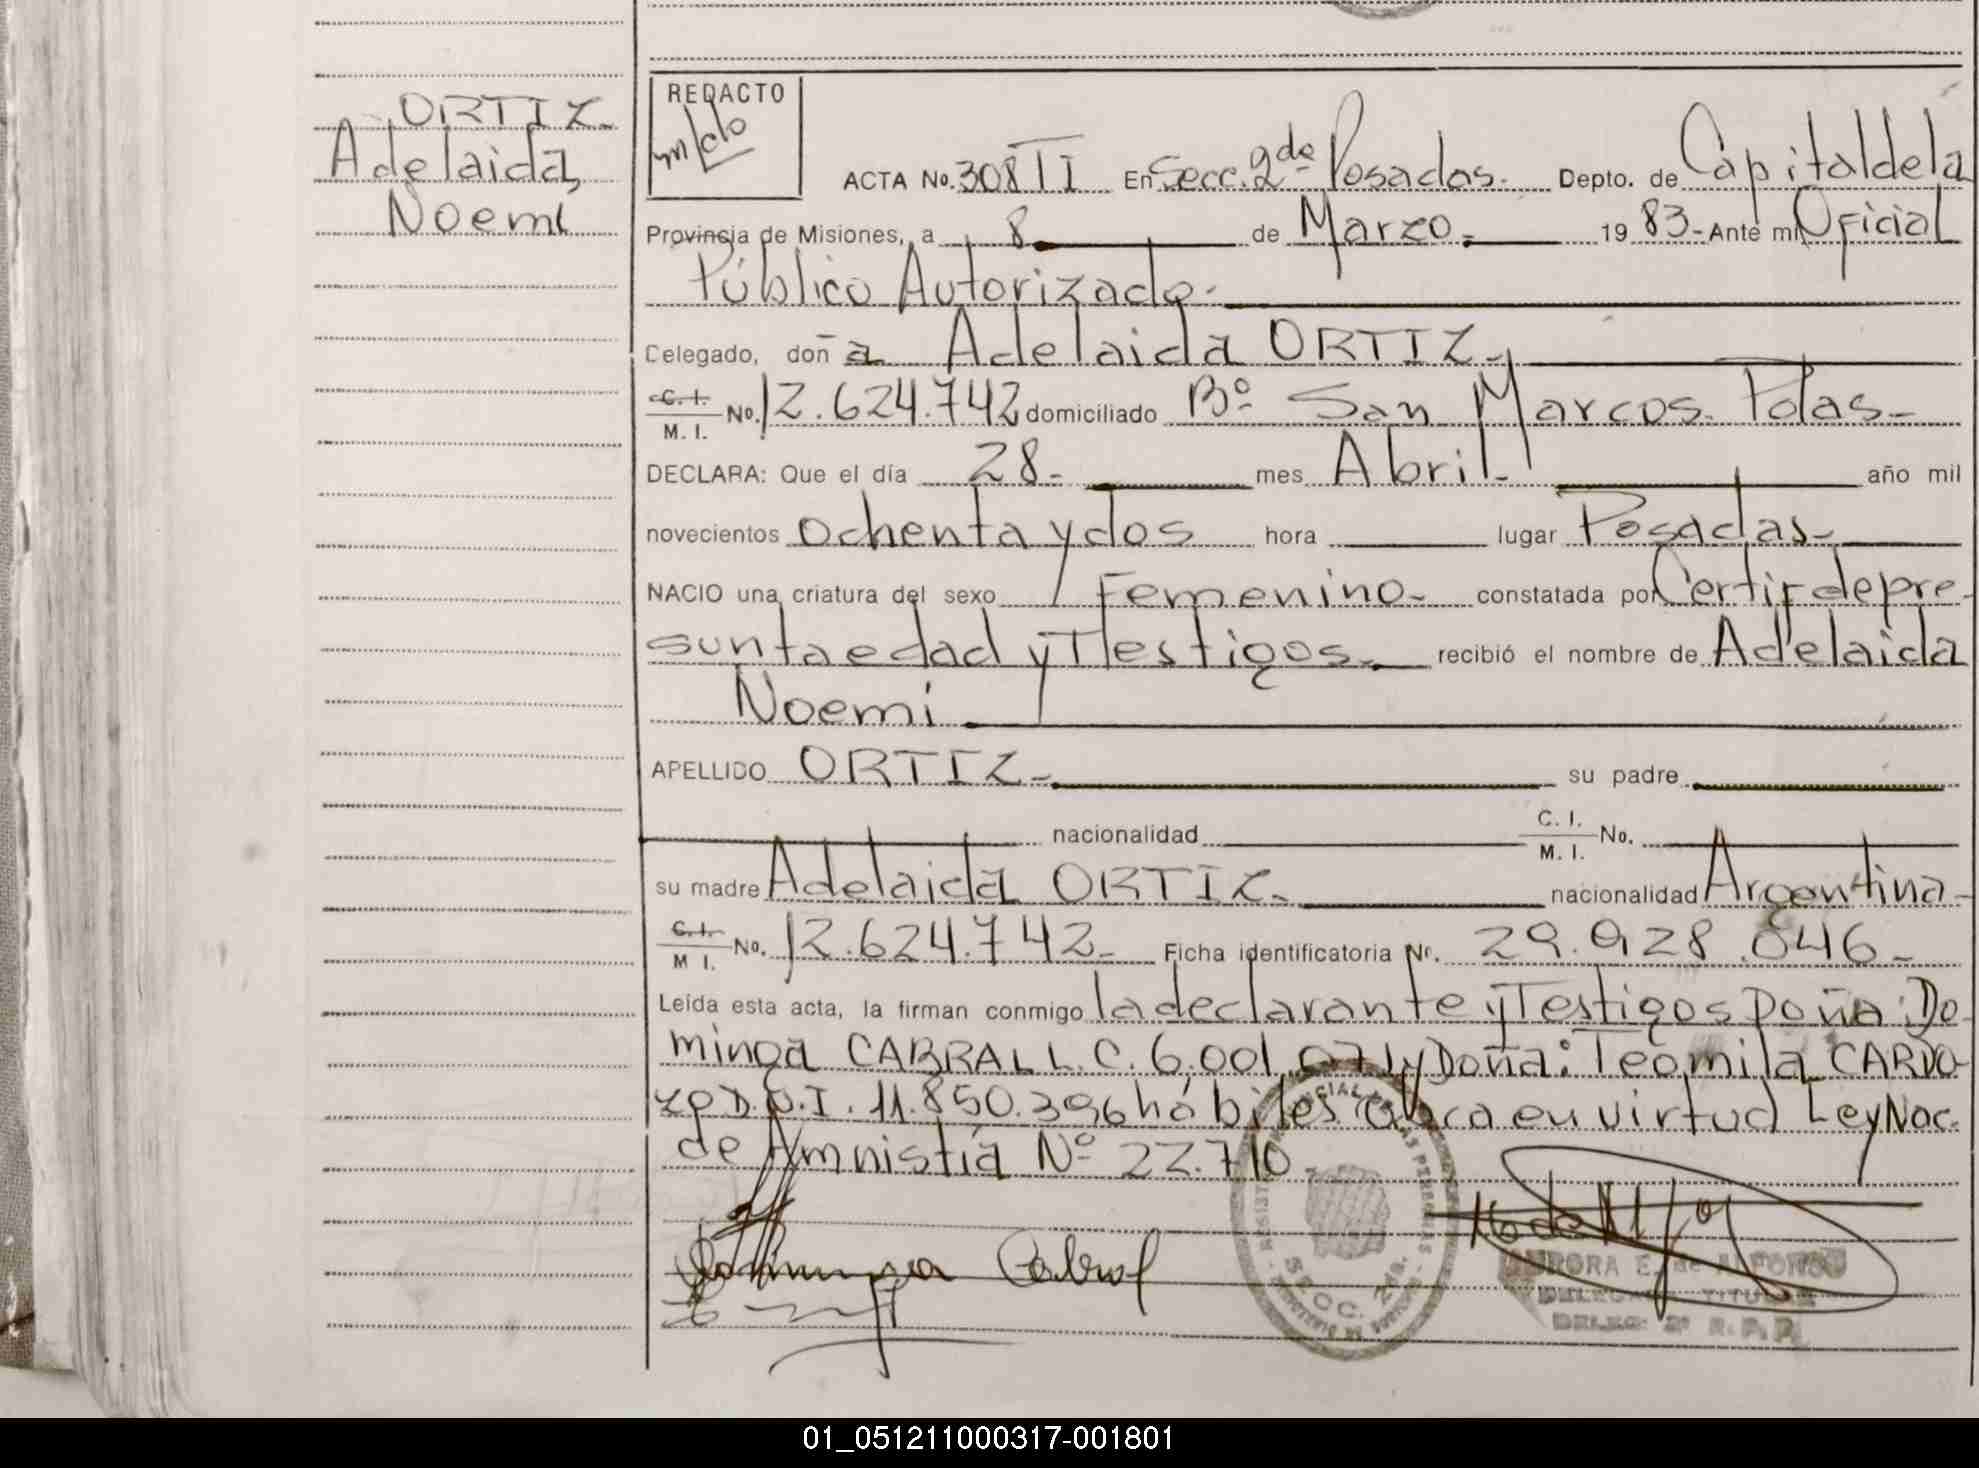 ORTIZ
Adelaida,
Noemi
REDACTO
ACTA No. 308 TI En Secc. 2da Posadas. Depto. de Capital de la
Provincia de Misiones, a 8 de Marzo. 1983- Ante mi Oficial
Público Autorizado.
Celegado, doña Adelaida ORTIZ.
C. I. / M. I. No. 12.624.742 domiciliado Bº San Marcos. Pdas-
DECLARA: Que el día 28- mes Abril- año mil
novecientos ochenta y dos hora lugar Posadas-
NACIO una criatura del sexo Femenino- constatada por Certif de pre
sunta edad y Testigos. recibió el nombre de Adelaida
Noemi
APELLIDO ORTIZ- su padre
nacionalidad C. I. / M. I. No.
su madre Adelaida ORTIZ- nacionalidad Argentina-
C. I. / M I. No. 12.624.742- Ficha identificatoria Nº. 29.928.046-
Leída esta acta, la firman conmigo la declarante y Testigos Doña: Do
minga CABRAL L.C. 6.001.071 y Doña: Teomila CARDO-
ZO D.N.I. 11.850.396 hábiles abca en virtud Ley Nac.
de Amnistía Nº 22.710.
Dominga Cabral
AURORA E. de ALFONSO
DELEGADA TITULAR
DELEG. 2ª R. P. P.
SECC. 2da.
01_051211000317-001801